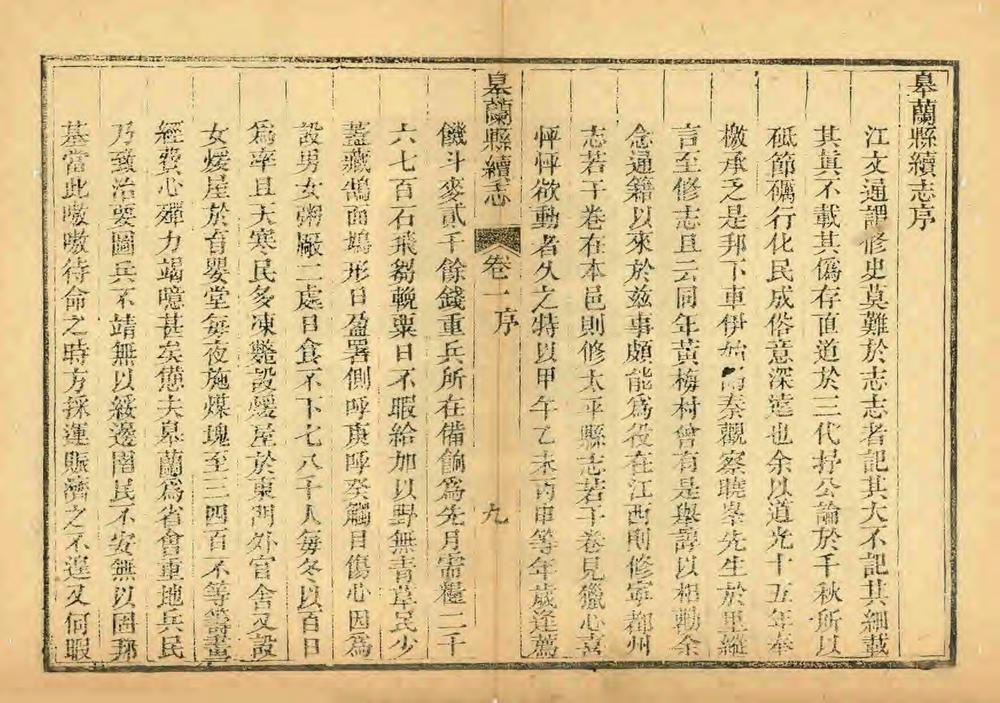 皋蘭縣續志序
江文通謂修史莫難於志志者記其大不記其細載
其眞不載其僞存直道於三代抒公論於千秋所以
砥節礪行化民成俗意深遠也余以道光十五年奉
檄承乏是邦下車伊始 秦觀察曉峯先生於里縱
言至修志且云同年黃梅村曾有是舉諄以相勸余
念通籍以來於兹事頗能爲役在江西則修寧都州
志若干卷在本邑則修太平縣志若干卷見獵心喜
怦怦欲動者久之特以甲午乙未丙申等年歲逢薦
皋蘭縣續志 卷一 序 九
饑斗麥貳千餘錢重兵所在備餉爲先月需糧二千
六七百石飛芻輓粟日不暇給加以野無青草民少
蓋藏鵠面鳩形日盈署側呼庚呼癸觸目傷心因爲
設男女粥廠二處日食不下七八千人每冬以百日
爲率且天寒民多凍斃設煖屋於東門外官舍又設
女煖屋於育嬰堂每夜施煤塊至三四百不等籌畫
經費心殫力竭噫甚矣憊夫皋蘭爲省會重地兵民
乃致治要圖兵不靖無以綏邊圉民不安無以固邦
基當此嗷嗷待命之時方採運賑濟之不遑又何暇